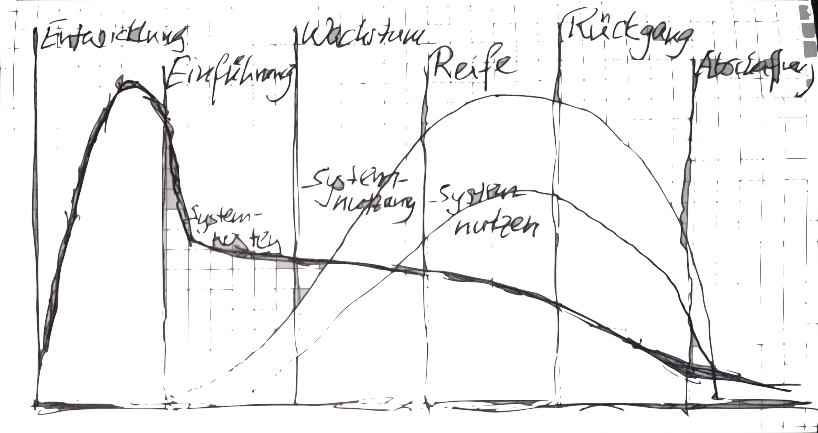 Entwicklung
Einführung
Wachstum
Reife
Rückgang
Abschaffung
System-
kosten
System-
nutzung
System-
nutzen